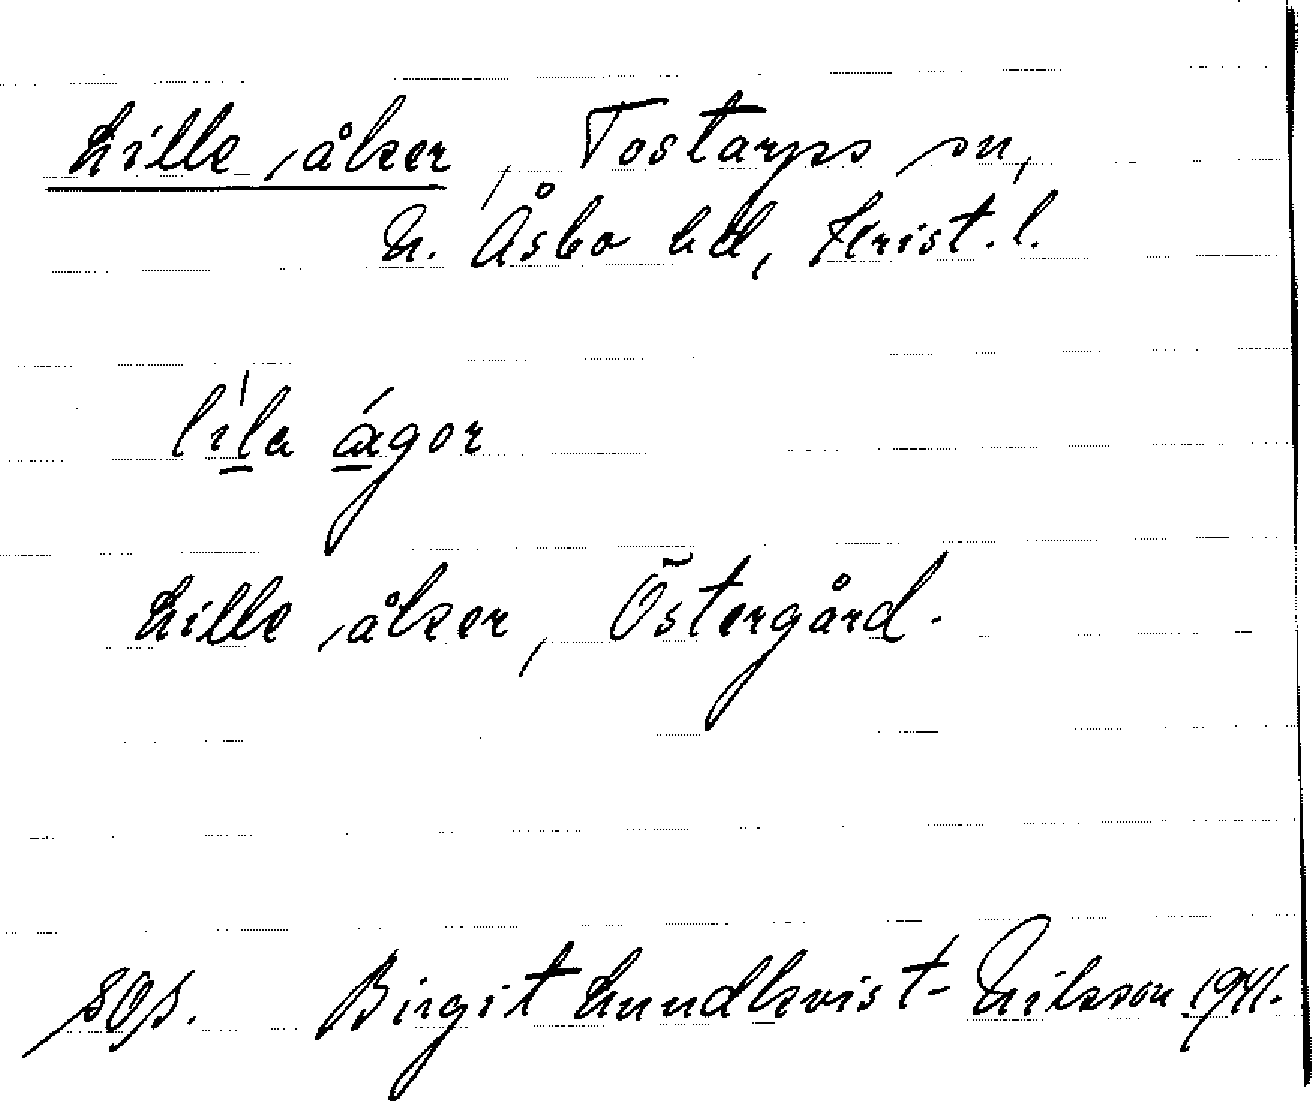 Lille åker, Tostarps sn,
N. Åsbo hd, Krist. l.
lila ágor
Lille åker, Östergård.
Birgit Lundkvist-Nilsson 1941.